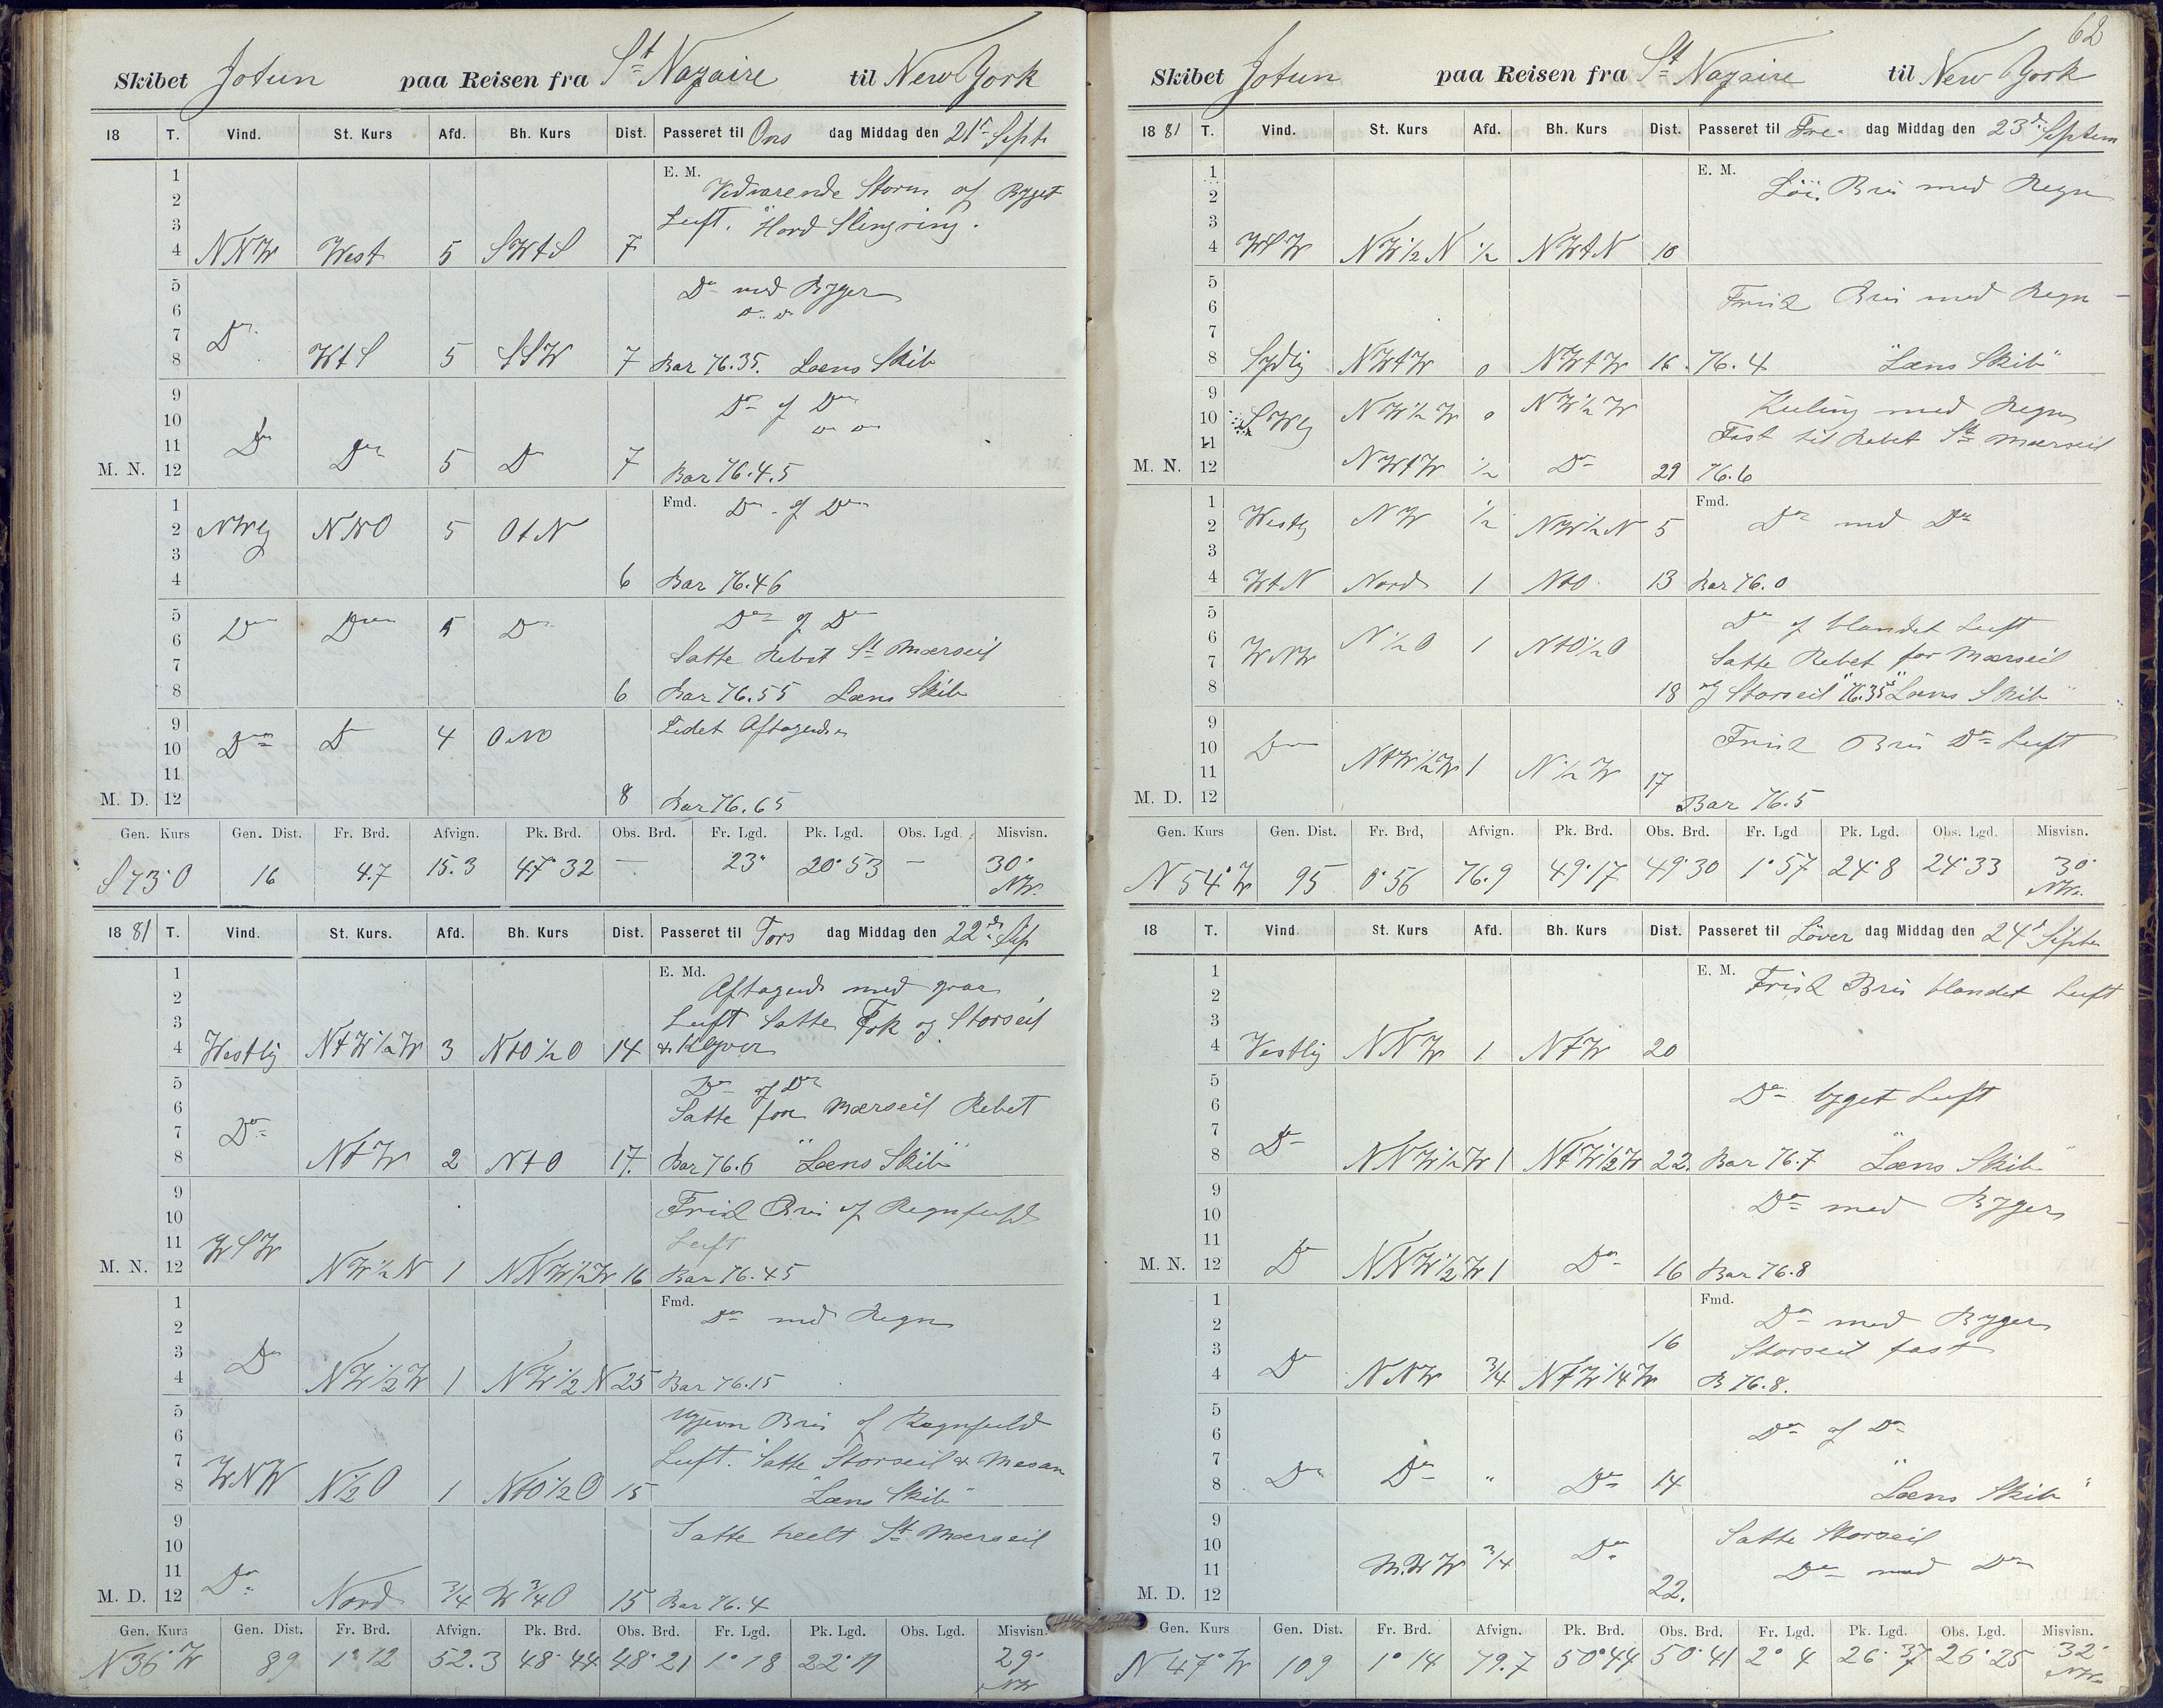 Skibet Jotun paa Reisen fra St Nazaire til New York
18 T. Vind. St. Kurs Afd. Bh. Kurs Dist. Passeret til Ons dag Middag den 21de Septr
1 E. M.
2 Vedvarende Storm af Byget
3 Luft. Hord Slingring.
4 NNW West 5 SWtS 7
5 Do med Byger
6
7 Do
8 WtS 5 SSW 7 Bar 76.35. Læns Skib
9 Do of Do
10
11
M. N. 12 Do Do 5 Do 7 Bar 76.4.5
1 Fmd. Do of Do
2 NWlg NNO 5 OtN
3
4 6 Bar 76.46
5 Do Do 5 Do Do of Do
6 Satte Rebet St Mærseil
7
8 6 Bar 76.55 Læns Skib
9 Lidet Aftagende
10 Do Do 4 ONO
11
M. D. 12 8 Bar 76.65
Gen. Kurs Gen. Dist. Fr. Brd. Afvign. Pk. Brd. Obs. Brd. Fr. Lgd. Pk. Lgd. Obs. Lgd. Misvisn.
S 73° O 16 4.7 15.3 47° 32 — 23' 20° 53 — 30° NW.
18 81 T. Vind. St. Kurs. Afd. Bh. Kurs Dist. Passeret til Tors dag Middag den 22de Sep
1 E. Md.
2 Aftagende med graa
3 Luft Satte Fok og Storseil
4 Westlig NtW½W 3 NtO½O 14 & Klyver
5 Do of Do
6 Satte for Mærseil Rebet
7 Do
8 NtW 2 NtO 17. Bar 76.6 "Læns Skib"
9 Frisk Bris of Regnfuld
10
11 WSW Luft
M. N. 12 NW½N 1 NNW½W 16 Bar 76.45
1 Fmd. Do med Regn
2
3 Do
4 NW½W 1 NW½N 25 Bar 76.15
5 Ujevn Bris of Regnfuld
6
7 Luft. Satte Storseil & Mesan
8 WNW N½O 1 NtO½O 15 "Læns Skib"
9 Satte heelt St Mærseil
10
11
M. D. 12 Do Nord ¾ N¾O 15 Bar 76.4
Gen. Kurs Gen. Dist. Fr. Brd. Afvign. Pk. Brd. Obs. Brd. Fr. Lgd. Pk. Lgd. Obs. Lgd. Misvisn.
N 36° W 89 1° 12 52.3 48° 44 48° 21 1° 18 22° 11 29° NW
62
Skibet Jotun paa Reisen fra St Nazaire til New York
18 81 T. Vind. St. Kurs Afd. Bh. Kurs Dist. Passeret til Fre dag Middag den 23de Septem
1 E. M. Löi Bris med Regn
2
3
4 WSW NW½N ½ NWtN 10
5
6 Frisk Bris med Regn
7
8 Sydlig NWtW 0 NWtW 16. 76.4 "Læns Skib"
9 Kuling med Regn
10 SWlg NW½W 0 NW½W
11 Fast til Rebet St Mærseil
M. N. 12 NWtW ½ Do 29 76.6
1 Fmd.
2 Westlg NW ½ NW½N 5 Do med Do
3
4 WtN Nord 1 NtO 13 Bar 76.0
5 Do of blandet Luft
6 N½O 1 NtO½O
7 WNW Satte Rebet for Mærseil
8 18 og Storseil 76.35 "Læns Skib"
9 Frisk Bris Do Luft
10 Do
11 NtW½W 1 N½W 17
M. D. 12 Bar 76.5
Gen. Kurs Gen. Dist. Fr. Brd, Afvign. Pk. Brd. Obs. Brd. Fr. Lgd Pk. Lgd. Obs. Lgd. Misvisn.
N 54° W 95 0° 56 76.9 49° 17 49° 30 1° 57 24° 8 24° 33 30° NW.
18 T. Vind. St. Kurs Afd. Bh. Kurs Dist. Passeret til Löver dag Middag den 24de Septr
1 E. M. Frisk Bris blandet Luft
2
3
4 Vestlig NNW 1 NtW 20
5 Do byget Luft
6
7
8 Do NNW½W 1 NtW½W 22. Bar 76.7 "Læns Skib"
9 Do med Byger
10
11
M. N. 12 Do NNW½W 1 Do 16 Bar 76.8
1 Fmd.
2 Do med Byger
3 16 Storseil fast
4 Do NNW ¾ NtW¼W B 76.8.
5
6 Do of Do
7
8 Do Do " Do 14 "Læns Skib"
9 Satte Storseil
10 Do
11 N.NW ¾ Do med Do
M. D. 12 22.
Gen. Kurs Gen. Dist. Fr. Brd. Afvign. Pk. Brd. Obs. Brd. Fr. Lgd. Pk. Lgd. Obs. Lgd. Misvisn.
N 47° W 109 1° 14 79.7 50° 44 50° 41 2° 4 26° 37 26° 25 32° NW